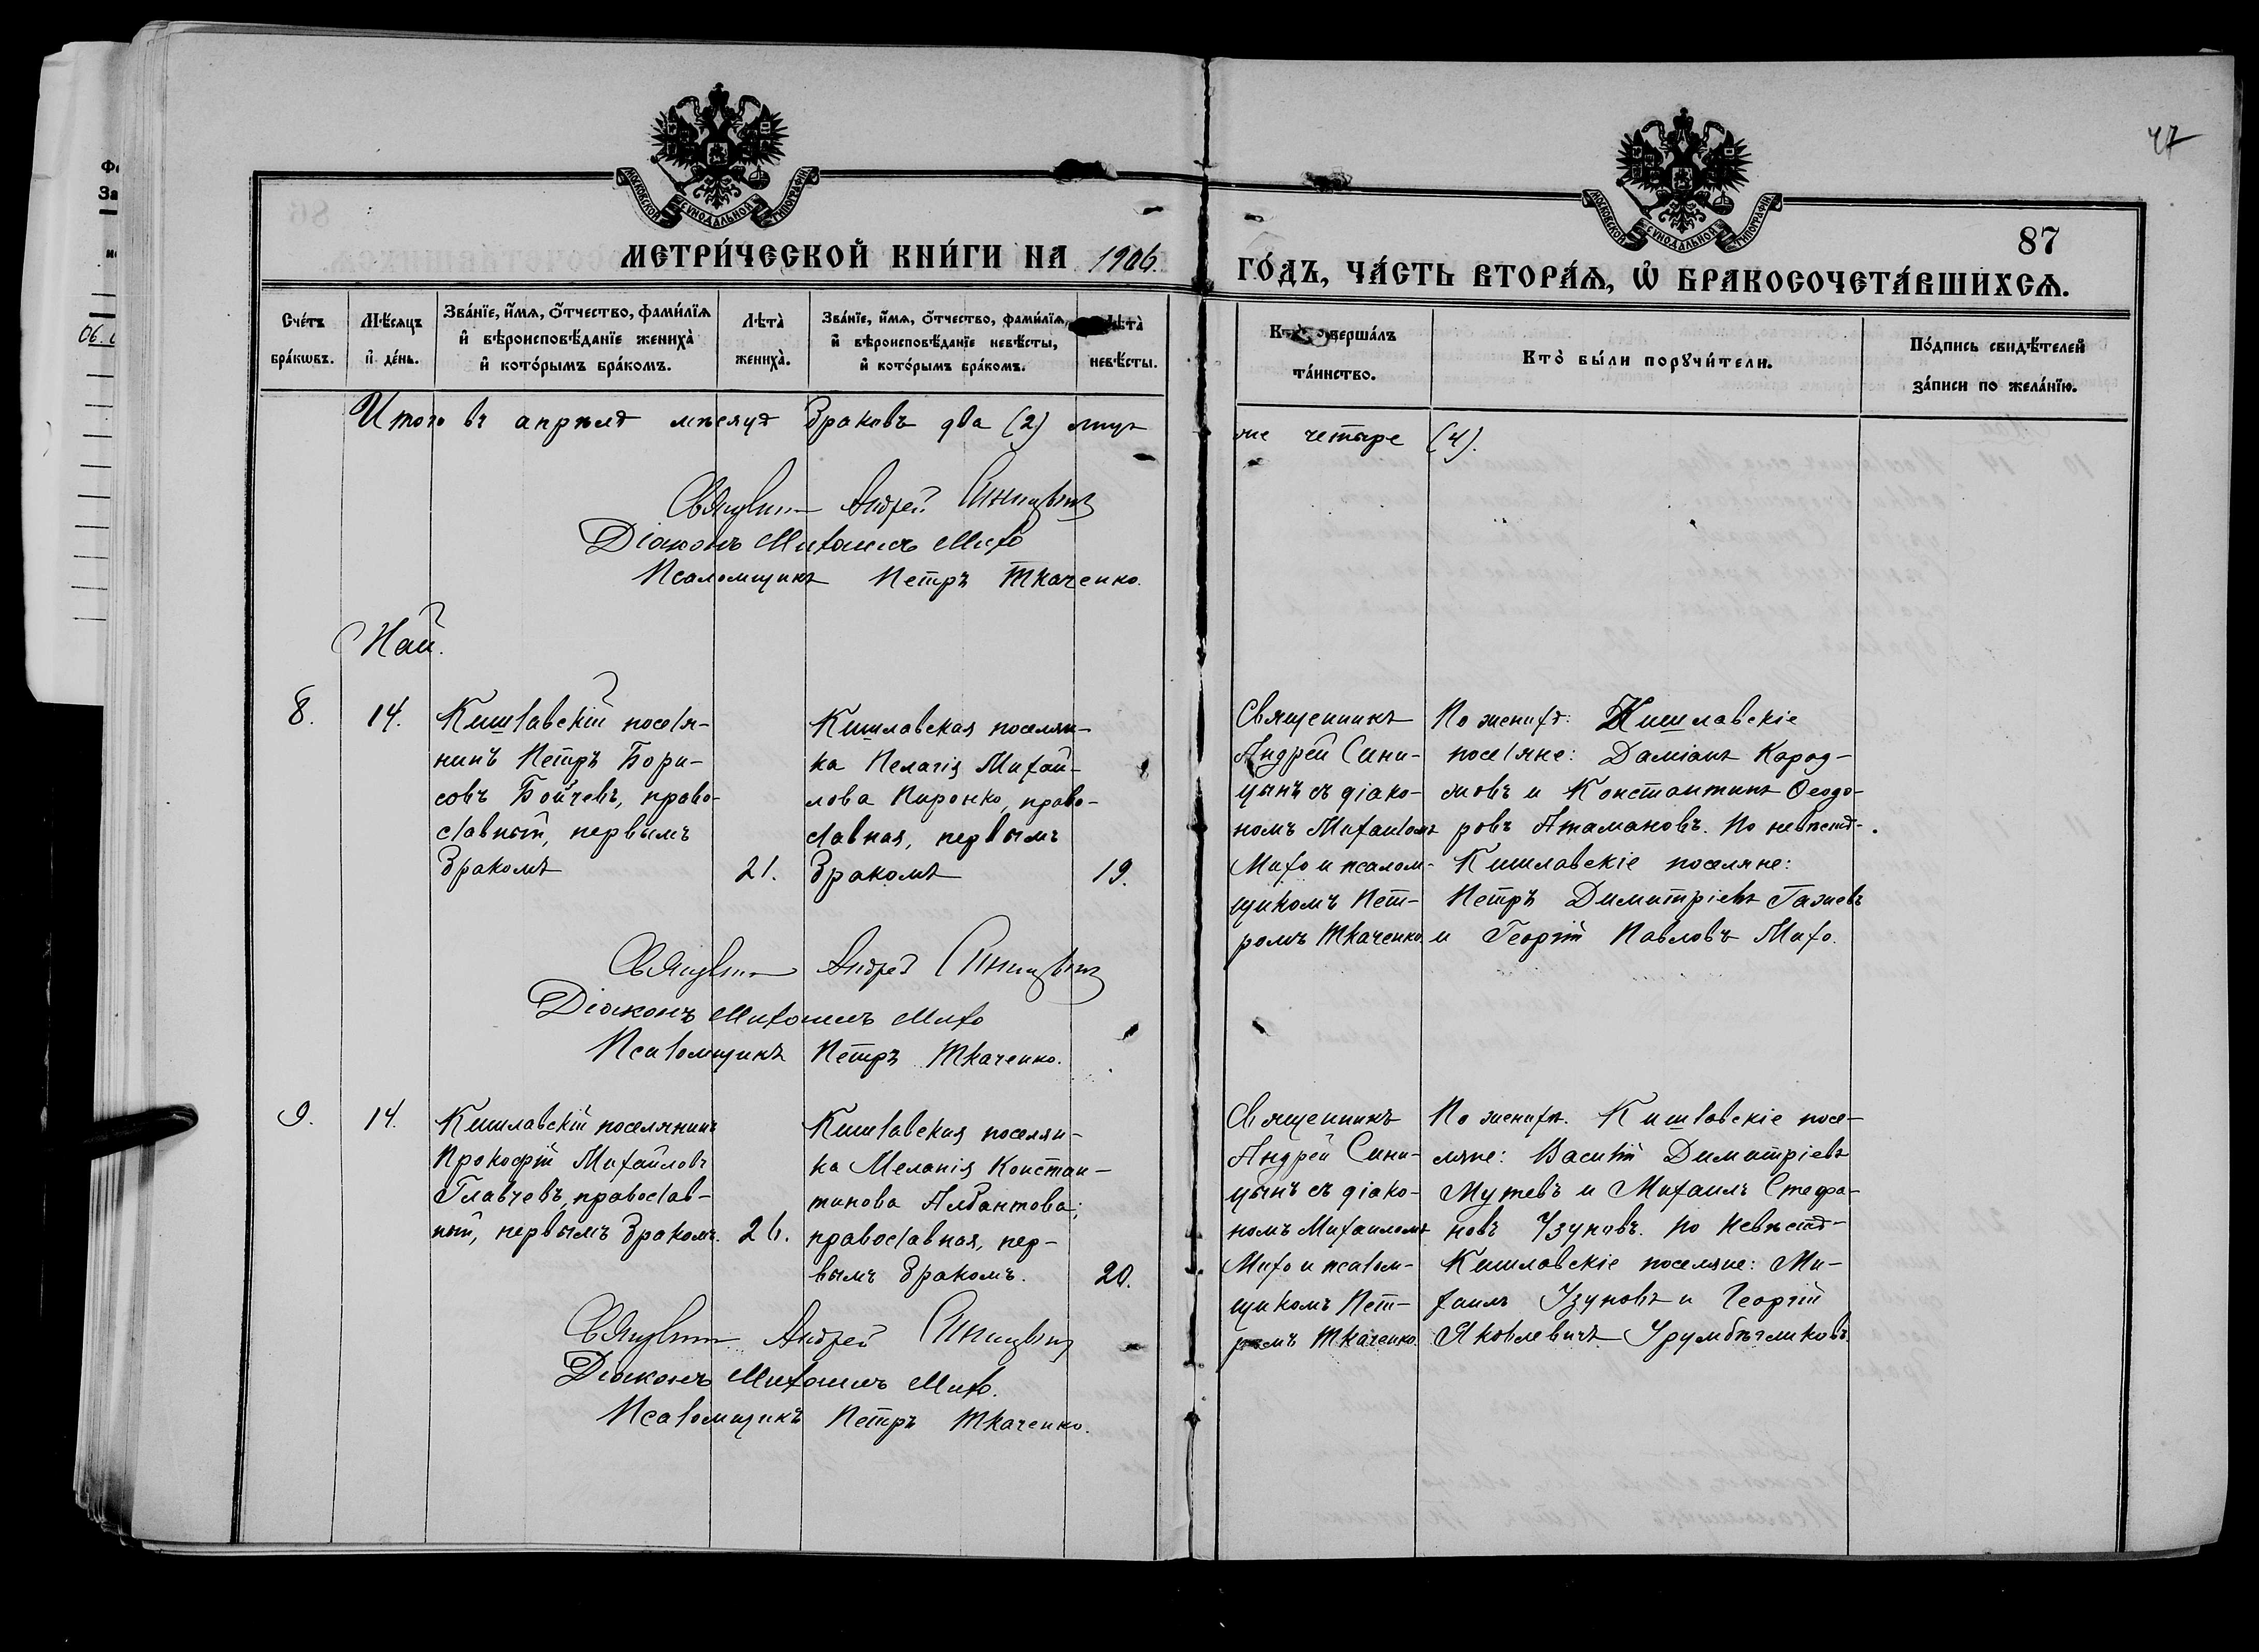 47
МОСКОВСКОЙ СУНОДАЛЬНОЙ ТИПОГРАФІИ
МОСКОВСКОЙ СУНОДАЛЬНОЙ ТИПОГРАФІИ
87
МЕТРИ́ЧЕСКОЙ КНИ́ГИ НА 1906.
ГО́ДЪ, ЧА́СТЬ ВТОРА́Ѧ, Ѡ БРАКОСОЧЕТА́ВШИХСѦ.
Сче́тъ
бра́кѡвъ.
Мѣ́сяцъ
и҆ де́нь.
Зва́нїе, и҆́мѧ, ѻ҆́тчество, фами́лїѧ
и҆ вѣроисповѣ́данїе жениха̀
и҆ кото́рымъ бра́комъ.
Лѣта̀
жениха̀.
Зва́нїе, и҆́мѧ, ѻ҆́тчество, фами́лїѧ,
и҆ вѣроисповѣ́данїе невѣ́сты,
и҆ кото́рымъ бра́комъ.
Лѣта̀
невѣ́сты.
Кто̀ соверша́лъ
та́инство.
Кто̀ бы́ли порꙋчи́тели.
По́дпись свидѣ́телей
за́писи по жела́нїю.
Итого въ апрѣлѣ мѣсяцѣ браковъ два (2) лицъ
же четыре (4).
Священникъ Андрей Синицынъ
Діаконъ Михаилъ Михо
Псаломщикъ Петръ Ткаченко.
Май.
8.
14.
Кишлавскій поселя-
нинъ Петръ Бори-
совъ Бойчевъ, право-
славный, первымъ
бракомъ
21.
Кишлавская поселян-
ка Пелагія Михай-
лова Пиронко, право-
славная, первымъ
бракомъ
19.
Священникъ
Андрей Сини-
цынъ съ діако-
номъ Михаиломъ
Михо и псалом-
щикомъ Пет-
ромъ Ткаченко.
По женихѣ: Кишлавскіе
поселяне: Даміанъ Карад-
жовъ и Константинъ Ѳеодо-
ровъ Атамановъ. По невѣстѣ-
Кишлавскіе поселяне:
Петръ Димитріевъ Гажевъ
и Георгій Павловъ Михо.
Священникъ Андрей Синицынъ
Діаконъ Михаилъ Михо
Псаломщикъ Петръ Ткаченко.
9.
14.
Кишлавскій поселянинъ
Прокофій Михайловъ
Главчевъ, православ-
ный, первымъ бракомъ.
26.
Кишлавская поселян-
ка Меланія Констан-
тинова Албантова;
православная, пер-
вымъ бракомъ.
20.
Священникъ
Андрей Сини-
цынъ съ діако-
номъ Михаиломъ
Михо и псалом-
щикомъ Пет-
ромъ Ткаченко.
По женихѣ. Кишлавскіе посе-
ляне: Василій Димитріевъ
Мутевъ и Михаилъ Стефа-
новъ Узуновъ. по невѣстѣ-
Кишлавскіе поселяне: Ми-
хаилъ Узуновъ и Георгій
Яковлевичъ Урумбѣгликовъ.
Священникъ Андрей Синицынъ
Діаконъ Михаилъ Михо.
Псаломщикъ Петръ Ткаченко.